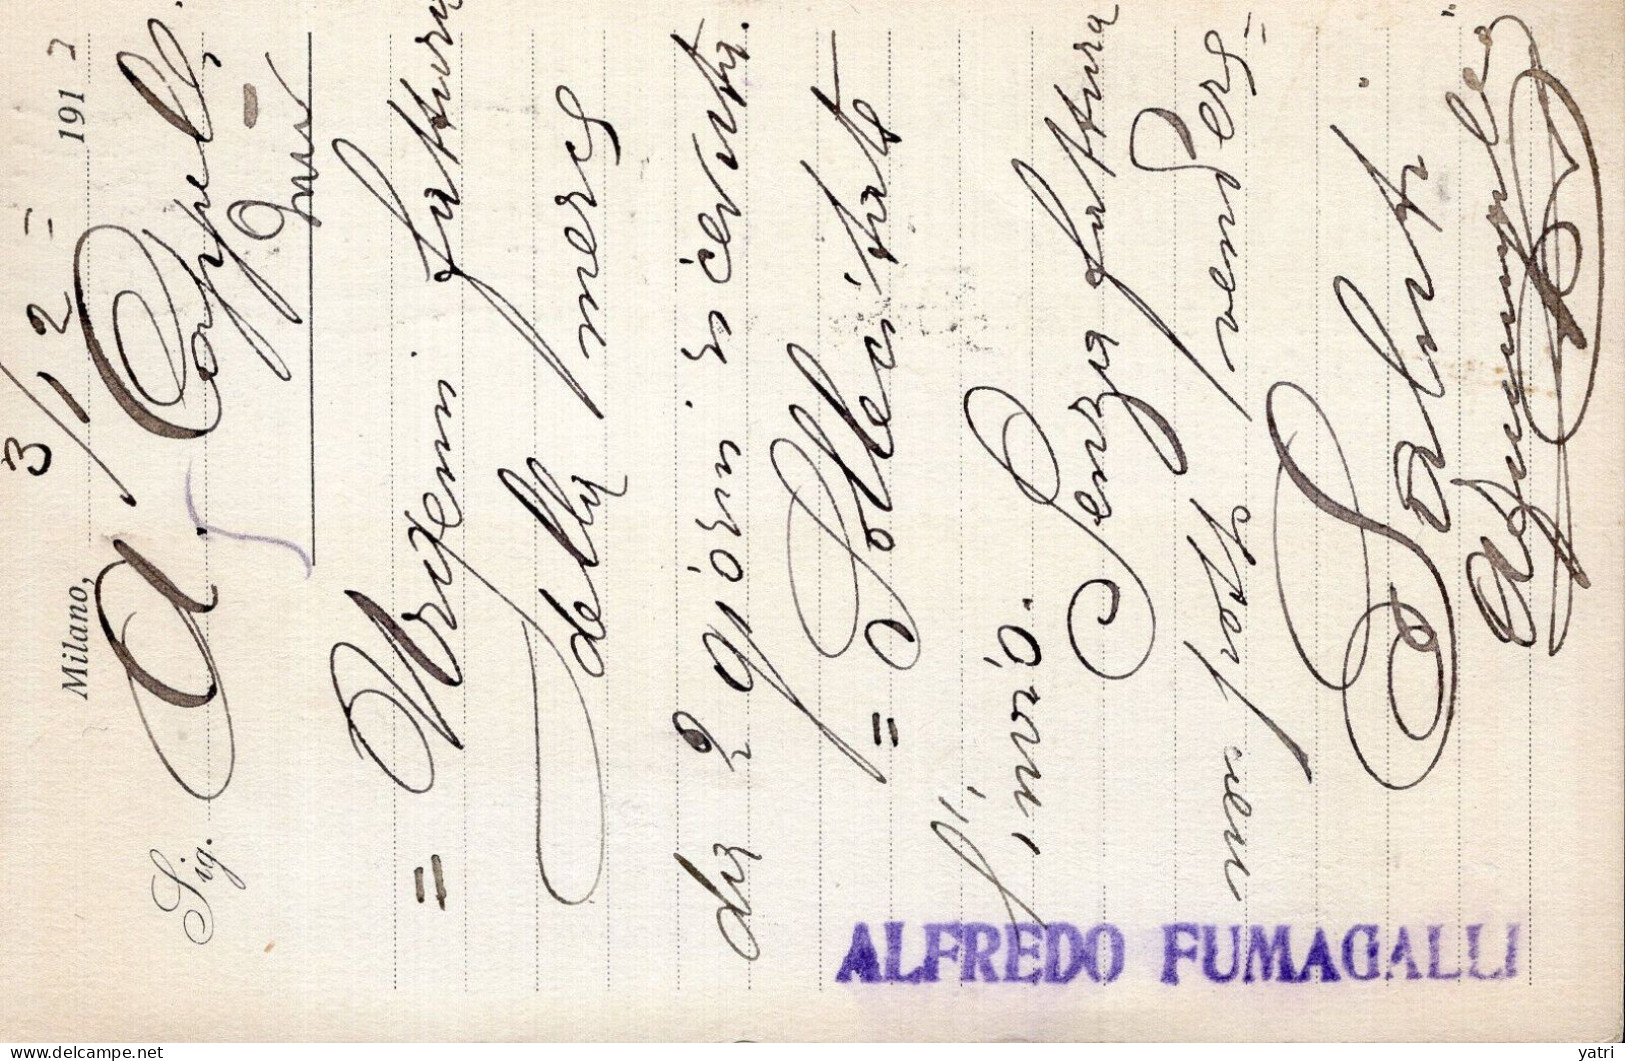 Milano, 3/12 = 1912
Sig. A. Coppelli.
= Urgemi fattura
della merce
da 2 giorni ricevuta.
= Sollecitate
l'invio.
Senza fattura
non potto vendere =
Saluti
AFumagalli
ALFREDO FUMAGALLI
delcampe.net
yatri